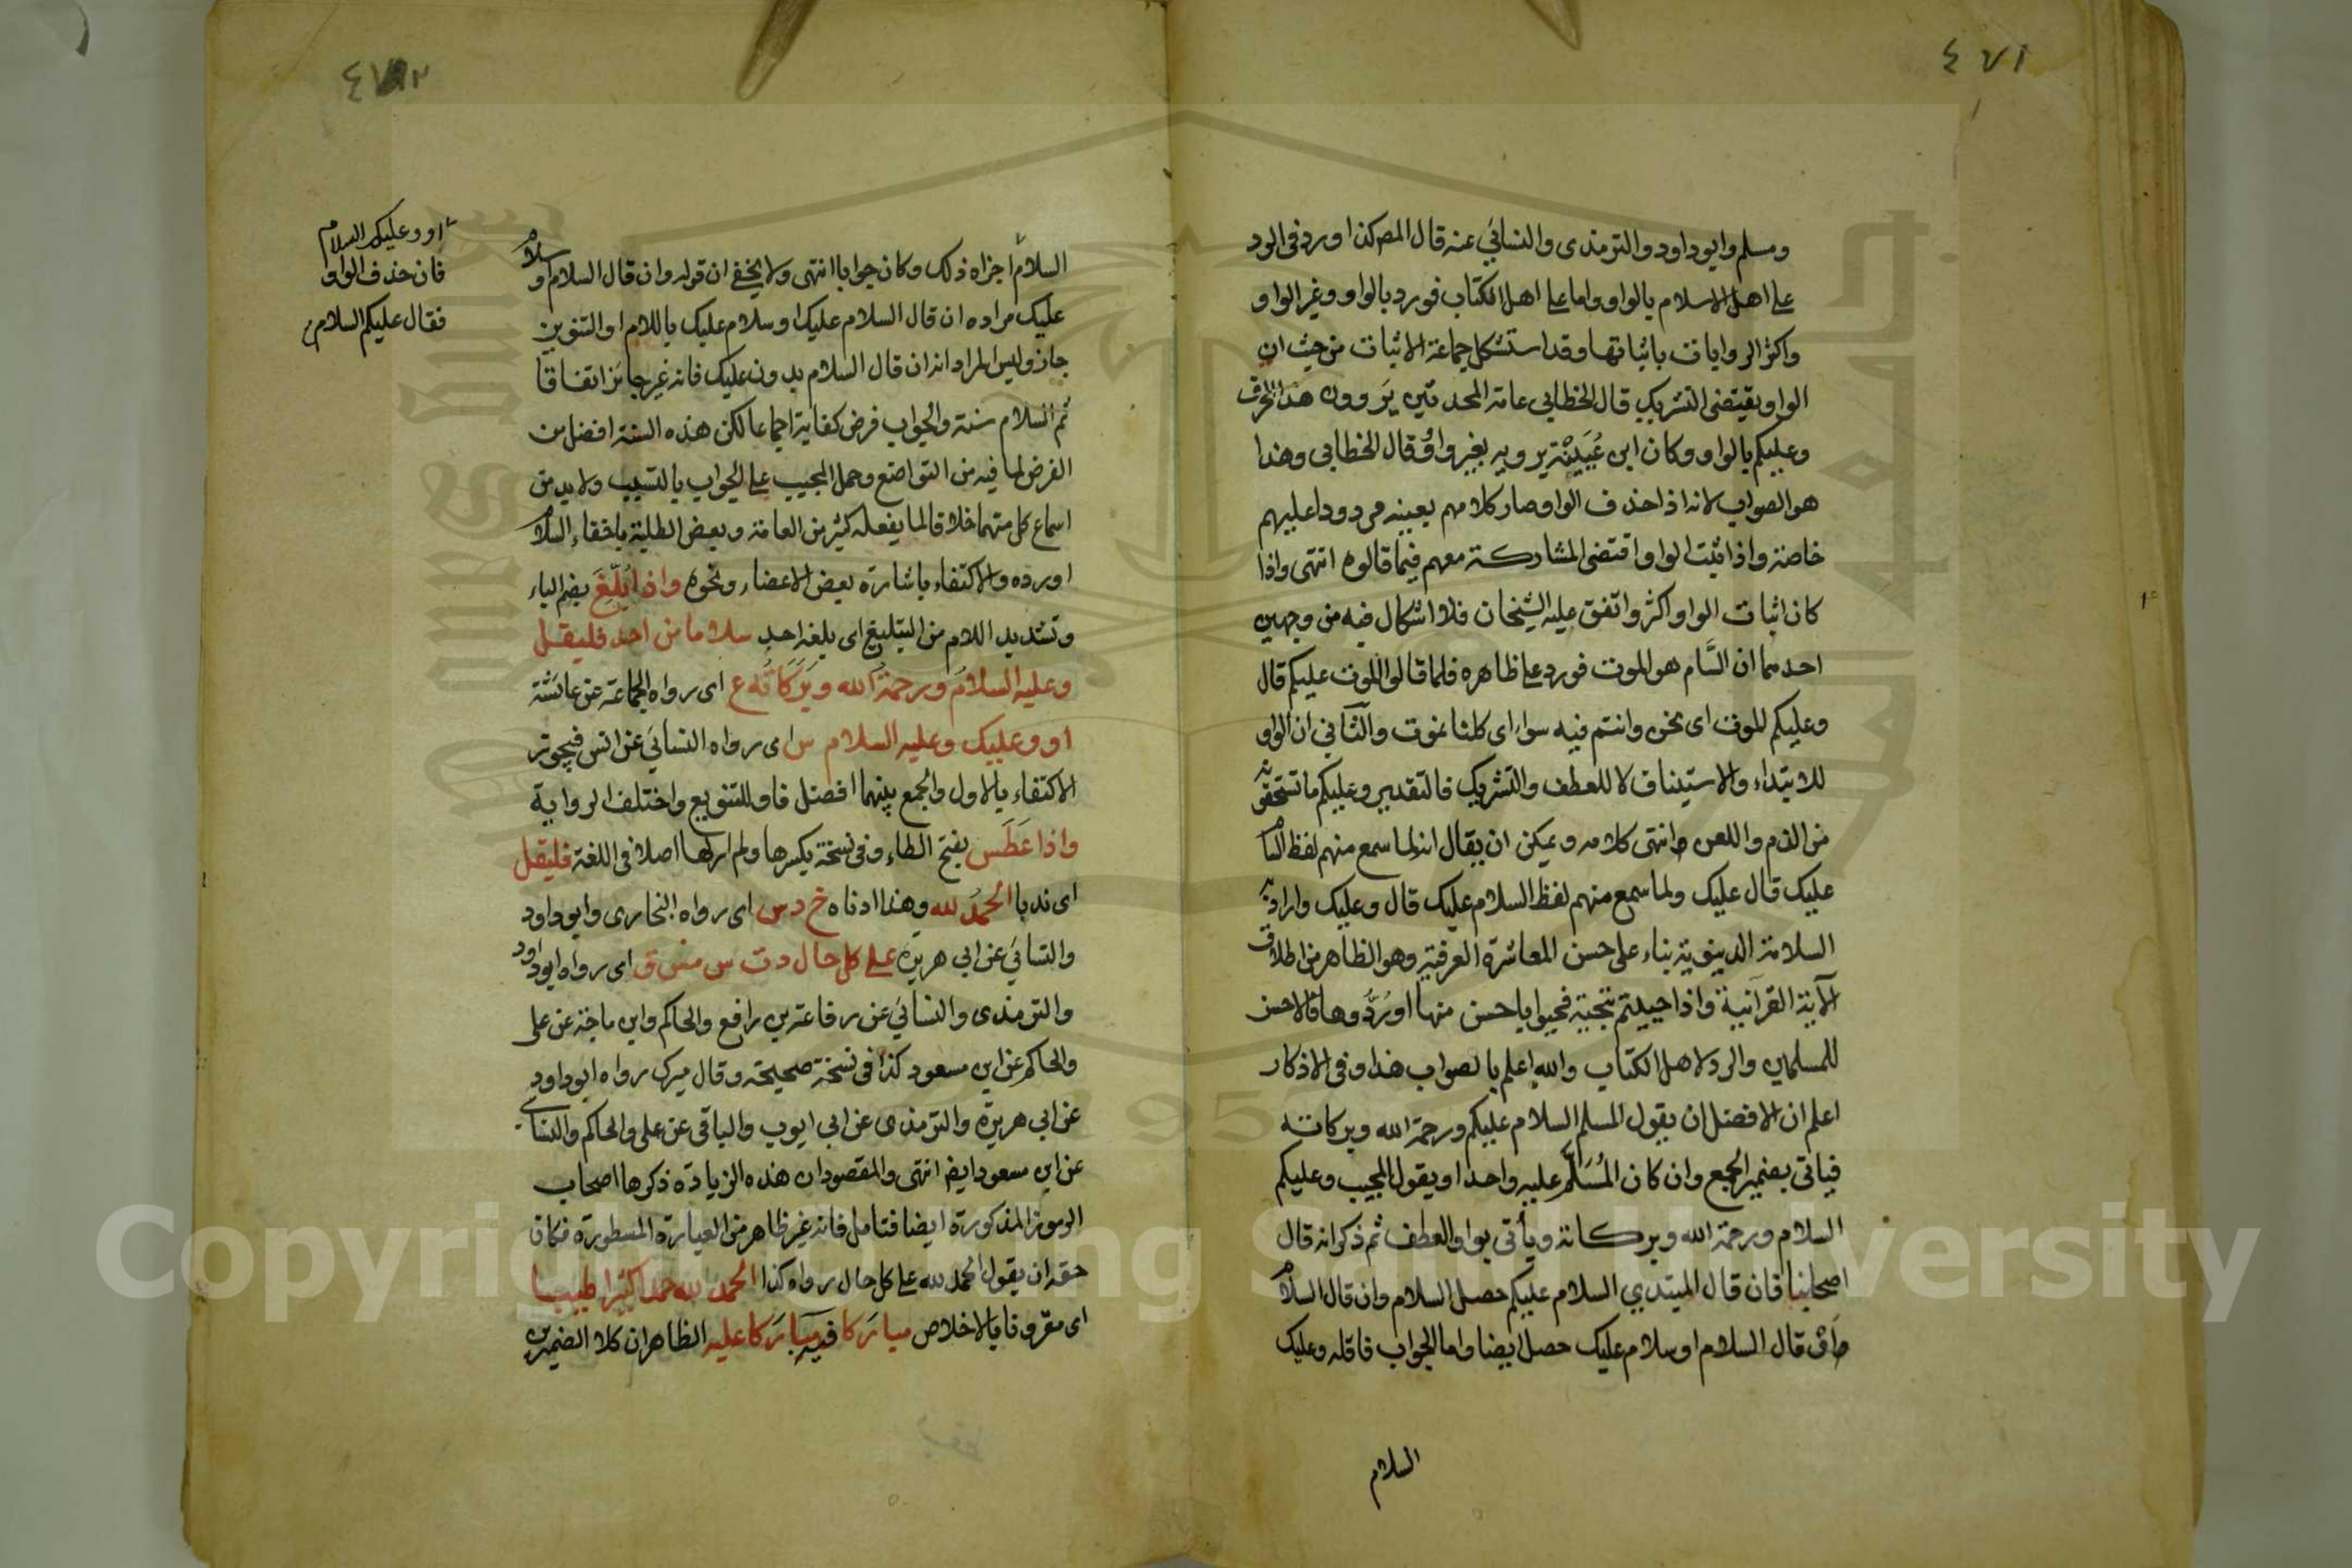 ٤٧١
ومسلم وابوداود والترمذى والنسائي عنه قال المص كذا ورد فى الرد
على اهل الاسلام بالواو واما على اهل الكتاب فورد بالواو وغير الواو
واكثر الروايات باثباتها وقد استشكل جماعة الاثبات من حيث ان
الواو يقتضى التشريك قال الخطابى عامة المحدثين يروون هذا الحرف
وعليكم بالواو وكان ابن عُيَيْنَة يرويه بغير واو قال الخطابى وهذا
هو الصواب لانه اذا حذف الواو صار كلامهم بعينه مردودا عليهم
خاصة واذا اثبت الواو اقتضى المشاركة معهم فيما قالوه انتهى واذا
كان اثبات الواو اكثر واتفق عليه الشيخان فلا اشكال فيه من وجهين
احدهما ان السَّام هو الموت فورد على ظاهره فلما قالوا الموت عليكم قال
وعليكم الموت اى نحن وانتم فيه سواء اى كلنا نموت والثاني ان الواو
للابتداء والاستيناف لا للعطف والتشريك فالتقدير وعليكم ما تستحقونه
من الذم واللعن انتهى كلامه ويمكن ان يقال انه لما سمع منهم لفظ السام
عليك قال عليك ولما سمع منهم لفظ السلام عليك قال وعليك واراد به
السلامة الدينوية بناء على حسن المعاشرة العرفية وهو الظاهر من اطلاق
الآية القرآنية واذا حييتم بتحية فحيوا باحسن منها او رُدُّوها فالاحسن
للمسلمين والرد لاهل الكتاب والله اعلم بالصواب هذا وفى الاذكار
اعلم ان الافضل ان يقول المسلم السلام عليكم ورحمة الله وبركاته
فياتى بضمير الجمع وان كان المُسَلَّم عليه واحدا ويقول المجيب وعليكم
السلام ورحمة الله وبركاته ويأتى بواو العطف ثم ذكر انه قال
اصحابنا فان قال المبتدي السلام عليكم حصل السلام وان قال السلام
قال السلام او سلام عليك حصل ايضا واما الجواب فاقله وعليك
السلام
السلام اجزاه ذلك وكان جوابا انتهى ولا يخفى ان قوله وان قال السلام او سلام
عليك مراده ان قال السلام عليك او سلام عليك باللام او التنوين
جاز وليس المراد انه ان قال السلام بدون عليك فانه غير جائز اتفاقا
ثم السلام سنة والجواب فرض كفاية اجماعا لكن هذه السنة افضل من
الفرض لما فيه من التواضع وحمل المجيب على الجواب بالتسبب ولا بد من
اسماع كل منهما خلافا لما يفعله كثير من العامة وبعض الطلبة باخفاء السلام
او رده والاكتفاء باشارة بعض الاعضاء ونحوه واذا بُلِّغَ بضم الباء
وتشديد اللام من التبليغ اى بلغه احد سلاما من احد فليقل
وعليه السلامُ ورحمةُ الله وبَرَكَاتُه ع اى رواه الجماعة عن عائشة
او وعليك وعليه السلام س اى رواه النسائي عن انس فيجوز
الاكتفاء بالاول والجمع بينهما افضل فاو للتنويع واختلف الرواية
واذا عَطَس بفتح الطاء وفى نسخة بكسرها ولم ار لها اصلا فى اللغة فليقل
اى ندبا الحمدُ لله وهذا ادناه خ د س اى رواه البخارى وابوداود
والنسائي عن ابى هريرة على كل حال د ت س مس ق اى رواه ابوداود
والترمذى والنسائي عن رفاعة بن رافع والحاكم وابن ماجة عن على
والحاكم عن ابن مسعود كذا فى نسخة صحيحة وقال ميرك رواه ابوداود
عن ابى هريرة والترمذى عن ابى ايوب والباقى عن على والحاكم والنسائي
عن ابن مسعود ايضا انتهى والمقصود ان هذه الزيادة ذكرها اصحاب
الرموز المذكورة ايضا فتامل فانه غير ظاهر من العبارة المسطورة فكان
حقه ان يقول الحمد لله على كل حال رواه كذا الحمد لله حمدا كثيرا طيبا
اى مقرونا بالاخلاص مباركا فيه مباركا عليه الظاهر ان كلا الضميرين
او وعليك السلام
فان حذف الواو
فقال عليكم السلام
Copyright © King Saud University